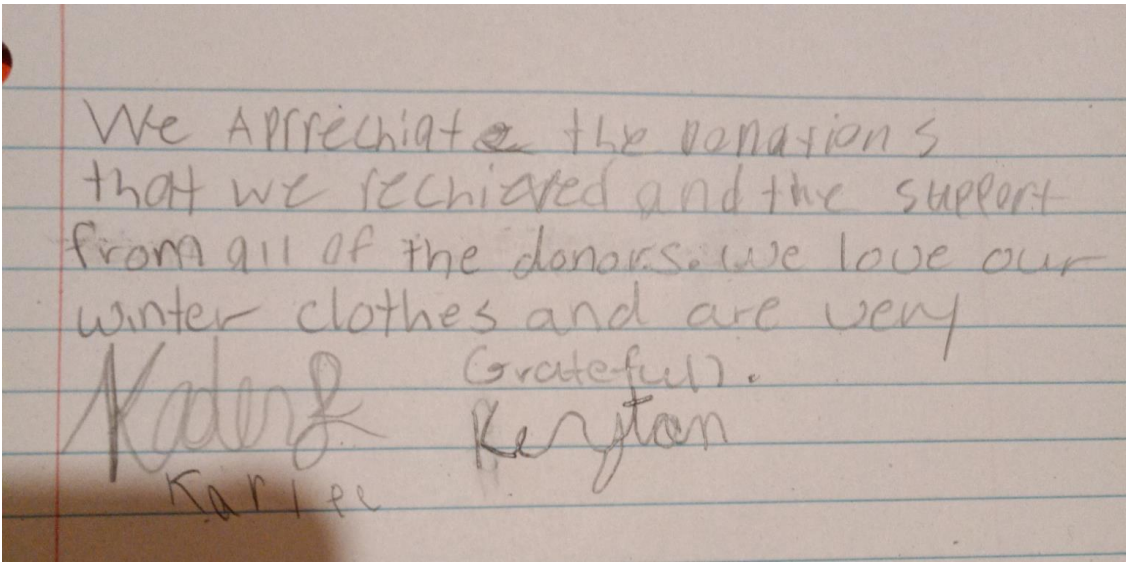 We Apprechiate the Donations
that we rechieved and the support
from all of the donors. we love our
winter clothes and are very
Gratefull.
Kaden &
Kenytan
Karlee